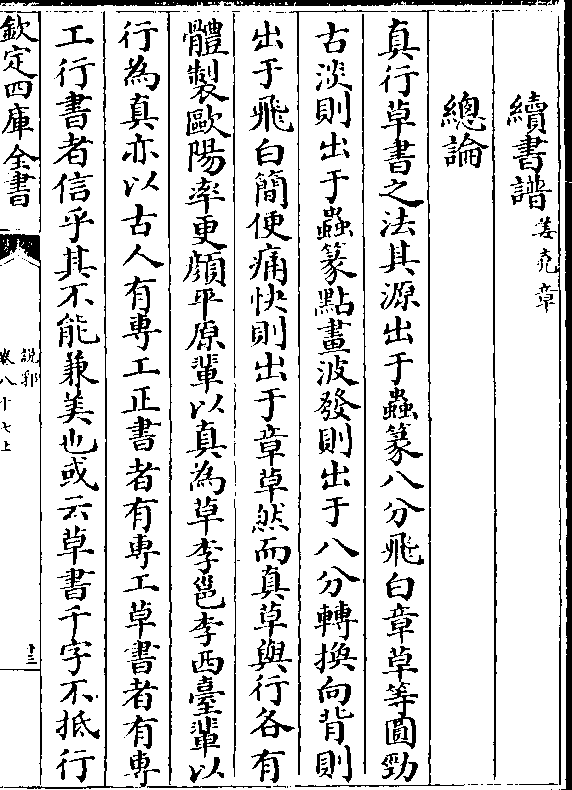 續書譜姜堯章
總論
真行草書之法其源出于蟲篆八分飛白章草等圓勁
古淡則出于蟲篆點畫波發則出于八分轉換向背則
出于飛白簡便痛快則出于章草然而真草與行各有
體製歐陽率更顏平原輩以真為草李邕李西臺輩以
行為真亦以古人有專工正書者有專工草書者有專
工行書者信乎其不能兼美也或云草書千字不抵行
欽定四庫全書
說郛
卷八十七上
十三